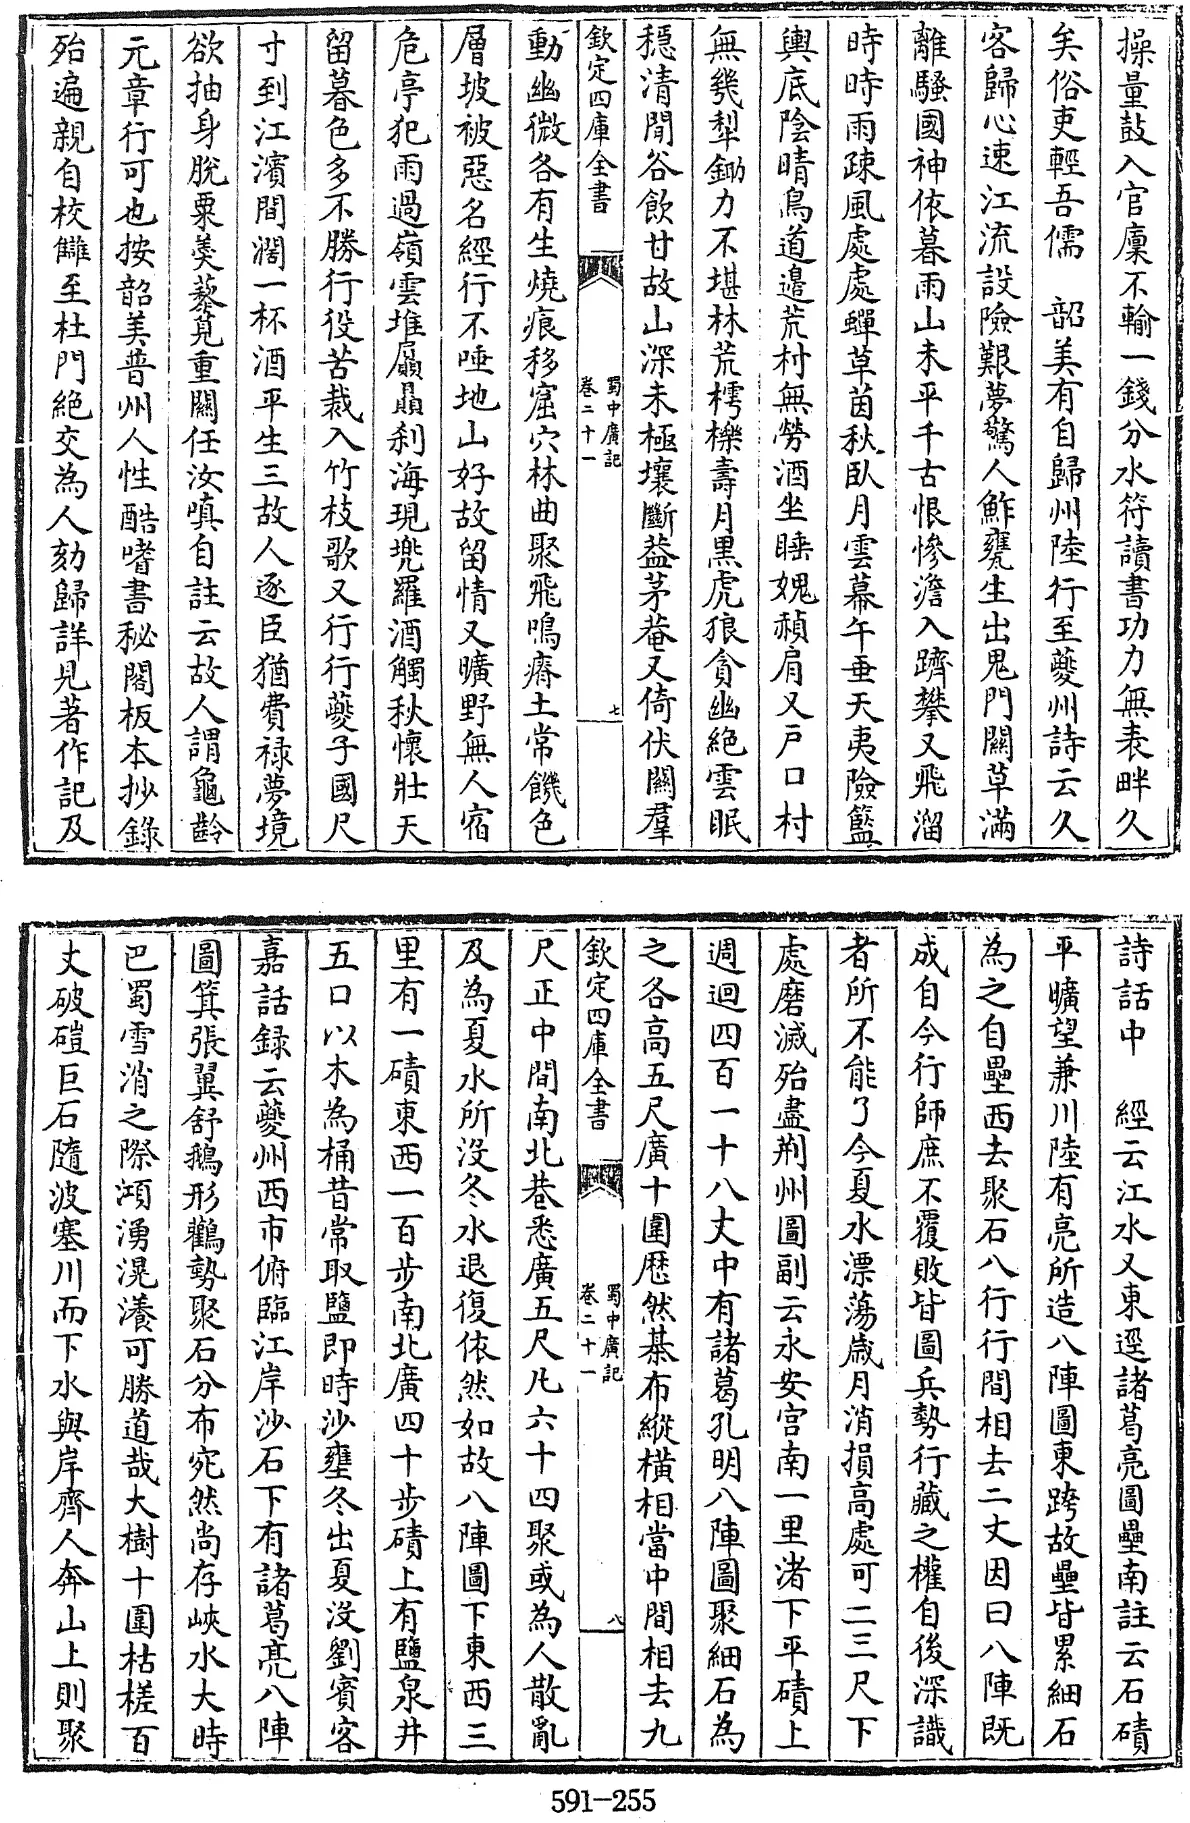 操量鼓入官廩不輸一錢分水符讀書功力無表畔久
矣俗吏輕吾儒　韶美有自歸州陸行至夔州詩云久
客歸心速江流設險艱夢驚人鮓甕生出鬼門關草滿
離騷國神依暮雨山未平千古恨慘澹入躋攀又飛溜
時時雨疎風處處蟬草茵秋臥月雲幕午垂天夷險籃
輿底陰晴鳥道邊荒村無勞酒坐睡媿赬肩又戶口村
無幾犁鋤力不堪林荒樗櫟壽月黑虎狼貪幽絕雲眠
穩清閒谷飲甘故山深未極壤斷葢茅菴又倚伏關羣
欽定四庫全書
蜀中廣記
卷二十一
七
動幽微各有生燒痕移窟穴林曲聚飛鳴瘠土常饑色
層坡被惡名經行不唾地山好故留情又曠野無人宿
危亭犯雨過嶺雲堆屭贔剎海現兠羅酒觸秋懷壯天
留暮色多不勝行役苦裁入竹枝歌又行行夔子國尺
寸到江濱間濶一杯酒平生三故人逐臣猶費祿夢境
欲抽身脫粟羮藜莧重關任汝嗔自註云故人謂龜齡
元章行可也按韶美普州人性酷嗜書秘閣板本抄錄
殆遍親自校讎至杜門絕交為人劾歸詳見著作記及
詩話中　經云江水又東逕諸葛亮圖壘南註云石磧
平曠望兼川陸有亮所造八陣圖東跨故壘皆累細石
為之自壘西去聚石八行行間相去二丈因曰八陣既
成自今行師庶不覆敗皆圖兵勢行藏之權自後深識
者所不能了今夏水漂蕩歲月消損高處可二三尺下
處磨滅殆盡荆州圖副云永安宫南一里渚下平磧上
週迴四百一十八丈中有諸葛孔明八陣圖聚細石為
之各高五尺廣十圍歴然棊布縱橫相當中間相去九
欽定四庫全書
蜀中廣記
卷二十一
八
尺正中間南北巷悉廣五尺凡六十四聚或為人散亂
及為夏水所沒冬水退復依然如故八陣圖下東西三
里有一磧東西一百步南北廣四十步磧上有鹽泉井
五口以木為桶昔常取鹽即時沙壅冬出夏沒劉賓客
嘉話録云夔州西市俯臨江岸沙石下有諸葛亮八陣
圖箕張翼舒鵝形鸛勢聚石分布宛然尚存峽水大時
巴蜀雪消之際澒湧滉瀁可勝道哉大樹十圍枯槎百
丈破磑巨石隨波塞川而下水與岸齊人奔山上則聚
591-255